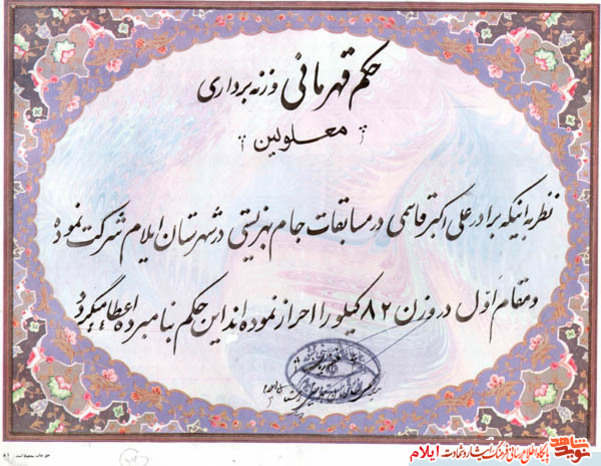 حکم قهرمانی وزنه برداری
معلولین
نظر به اینکه برادر علی اکبر قاسمی در مسابقات جام بهزیستی در شهرستان ایلام شرکت نموده
و مقام اوّل در وزن ۸۲ کیلو را احراز نموده اند این حکم بنامبرده اعطا میگردد
حق چاپ محفوظ است
۸۱
نوید شاهد
پایگاه اطلاع رسانی فرهنگ ایثار و شهادت ایلام